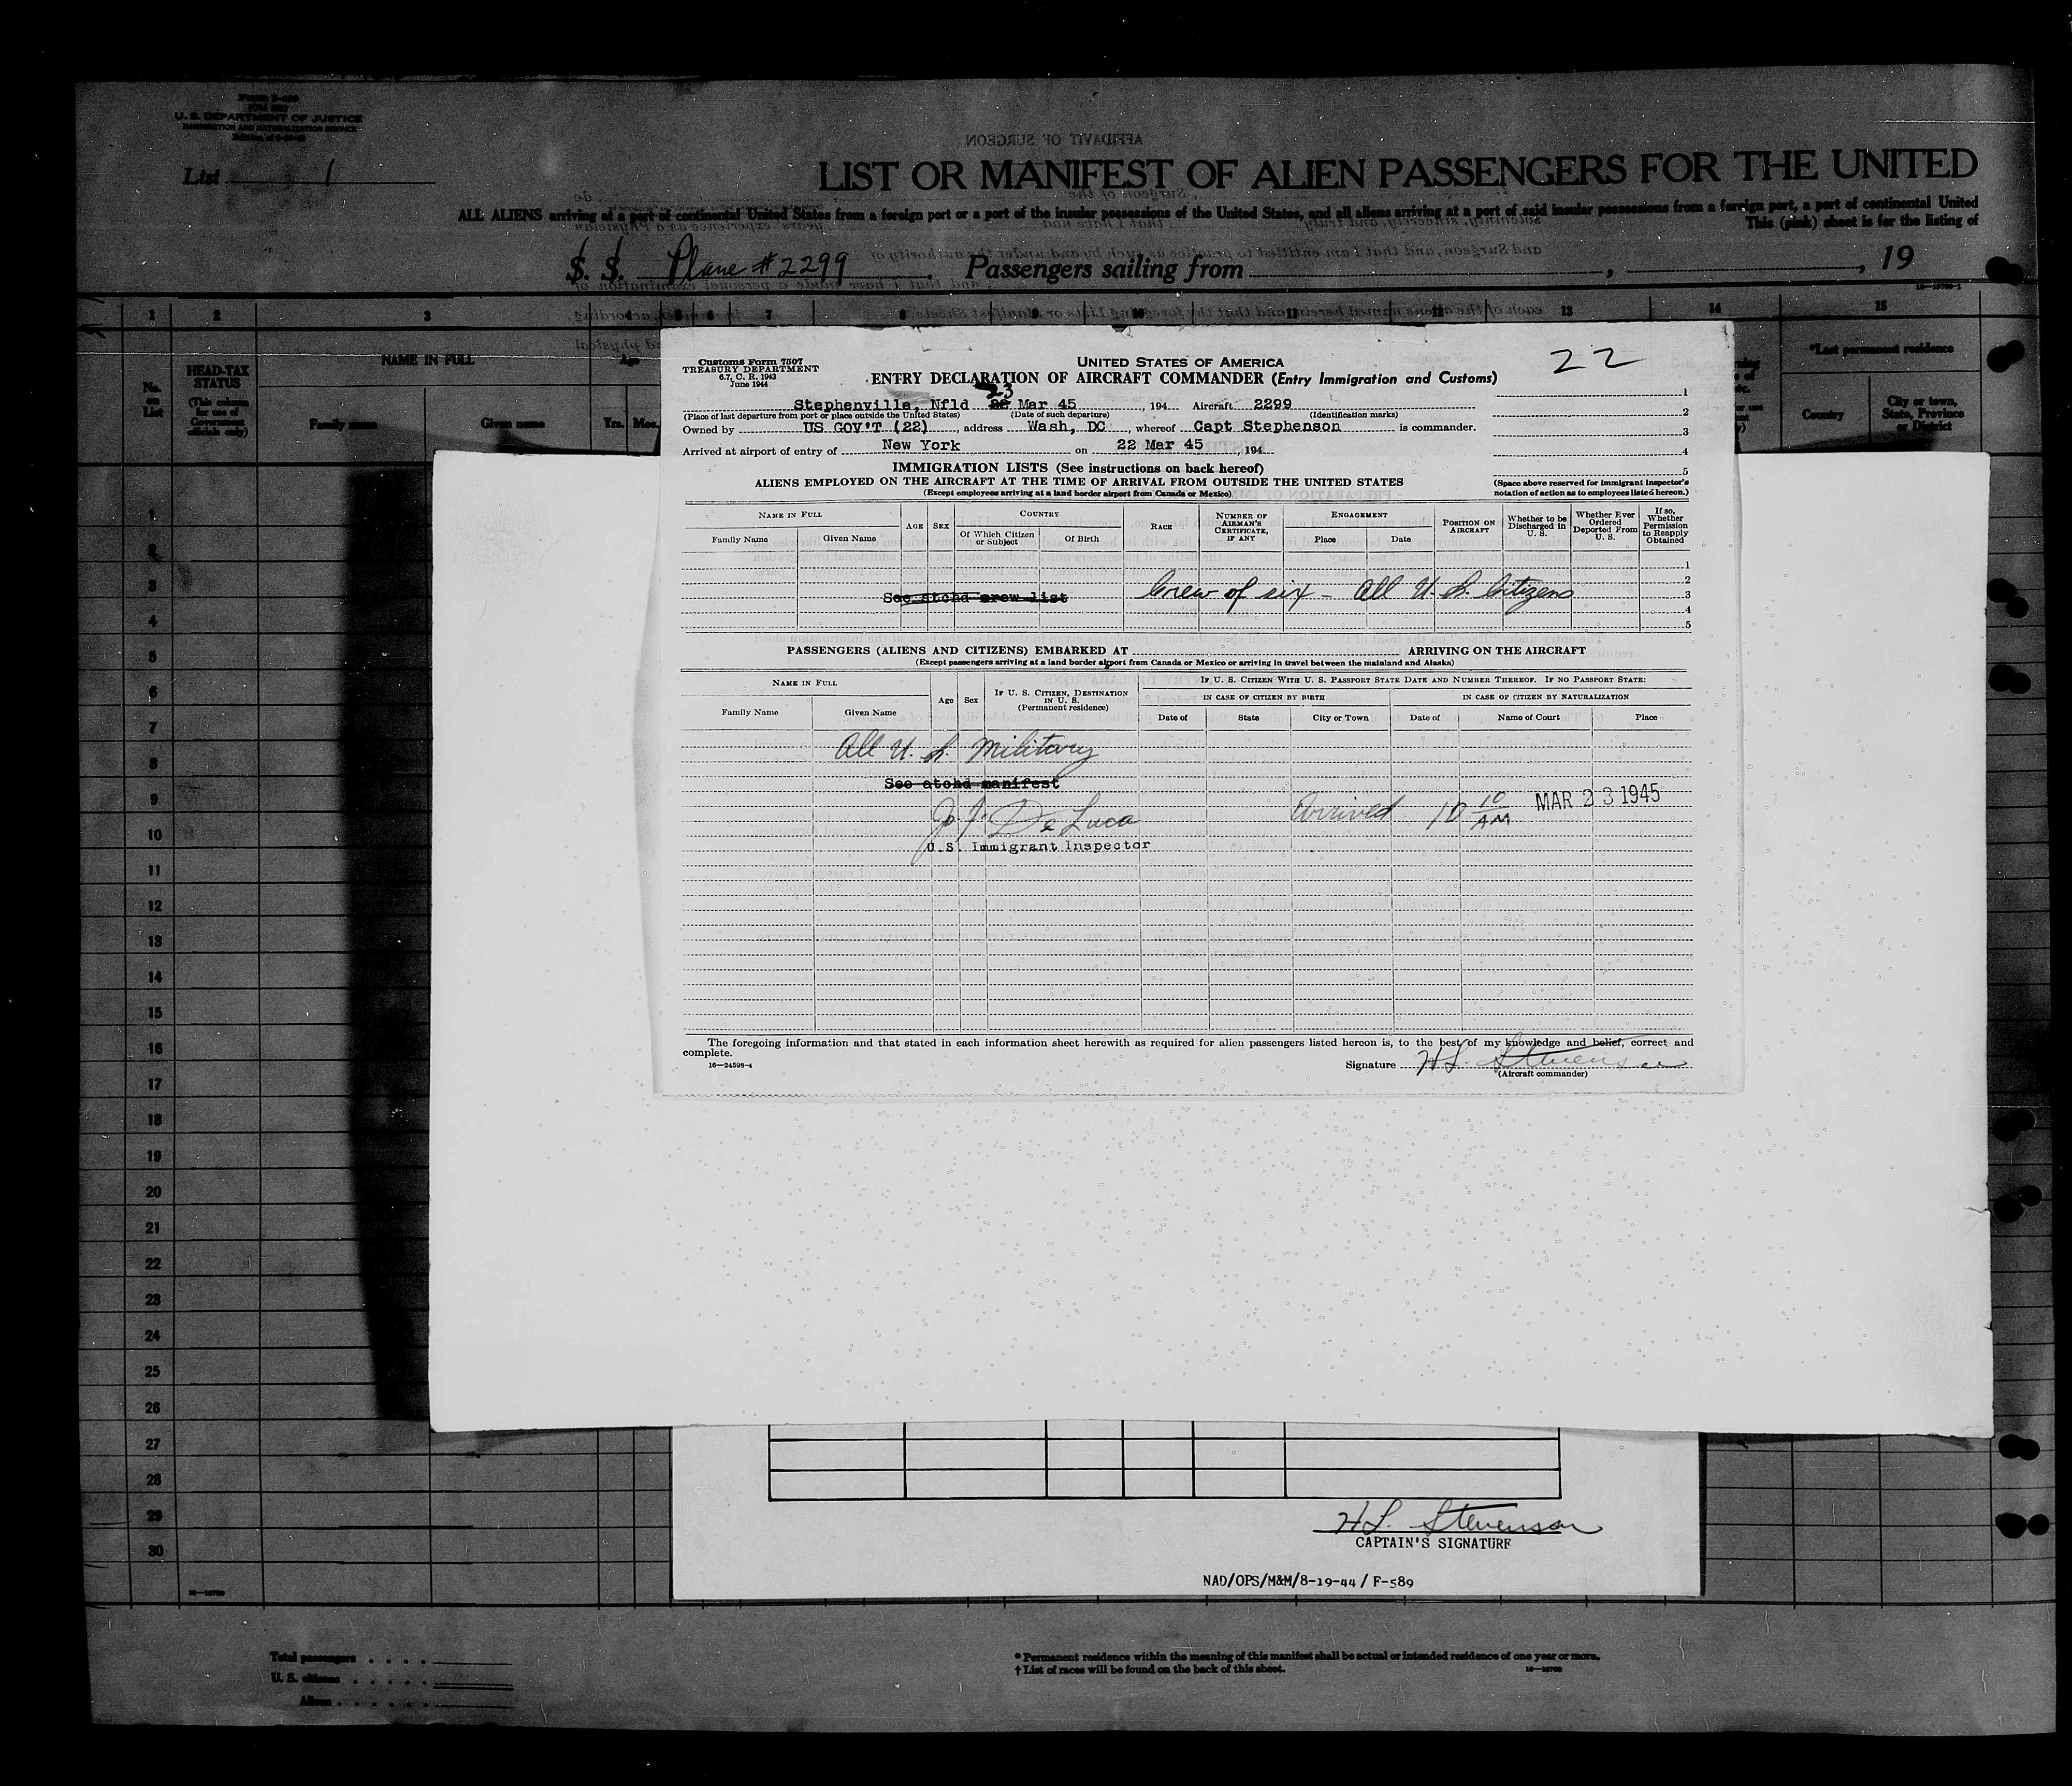 U. S. DEPARTMENT OF JUSTICE
IMMIGRATION AND NATURALIZATION SERVICE
List 1
AFFIDAVIT OF SURGEON
LIST OR MANIFEST OF ALIEN PASSENGERS FOR THE UNITED
ALL ALIENS arriving at a port of continental United States from a foreign port or a port of the insular possessions of the United States, and all aliens arriving at a port of said insular possessions from a foreign port, a port of continental United
This (pink) sheet is for the listing of
S. S. Plane #2299. Passengers sailing from , , 19
1 2 3 4 5 6 7 8 9 10 11 12 13 14 15
No. on List
HEAD-TAX STATUS
(This column for use of Government officials only)
NAME IN FULL
Family name Given name
Age
Yrs. Mos.
*Last permanent residence
Country City or town, State, Province or District
Customs Form 7507
TREASURY DEPARTMENT
6.7, C. R. 1943
June 1944
UNITED STATES OF AMERICA
22
ENTRY DECLARATION OF AIRCRAFT COMMANDER (Entry Immigration and Customs)
23
Stephenville, Nfld 22 Mar 45, 194 Aircraft 2299
(Place of last departure from port or place outside the United States) (Date of such departure) (Identification marks)
Owned by US GOV'T (22), address Wash, DC, whereof Capt Stephenson is commander.
Arrived at airport of entry of New York on 22 Mar 45, 194
1
2
3
4
5
(Space above reserved for immigrant inspector's notation of action as to employees listed hereon.)
IMMIGRATION LISTS (See instructions on back hereof)
ALIENS EMPLOYED ON THE AIRCRAFT AT THE TIME OF ARRIVAL FROM OUTSIDE THE UNITED STATES
(Except employees arriving at a land border airport from Canada or Mexico)
NAME IN FULL AGE SEX COUNTRY RACE NUMBER OF AIRMAN'S CERTIFICATE, IF ANY ENGAGEMENT POSITION ON AIRCRAFT Whether to be Discharged in U. S. Whether Ever Ordered Deported From U. S. If so, Whether Permission to Reapply Obtained
Family Name Given Name Of Which Citizen or Subject Of Birth Place Date
1
2
3
4
5
See atchd crew list Crew of six - All U. S. Citizens
PASSENGERS (ALIENS AND CITIZENS) EMBARKED AT ARRIVING ON THE AIRCRAFT
(Except passengers arriving at a land border airport from Canada or Mexico or arriving in travel between the mainland and Alaska)
NAME IN FULL Age Sex IF U. S. CITIZEN, DESTINATION IN U. S. (Permanent residence) IF U. S. CITIZEN WITH U. S. PASSPORT STATE DATE AND NUMBER THEREOF. IF NO PASSPORT STATE:
IN CASE OF CITIZEN BY BIRTH IN CASE OF CITIZEN BY NATURALIZATION
Family Name Given Name Date of State City or Town Date of Name of Court Place
All U. S. Military
See atchd manifest
J. J. De Luca Arrived 10 10 AM MAR 23 1945
U.S. Immigrant Inspector
The foregoing information and that stated in each information sheet herewith as required for alien passengers listed hereon is, to the best of my knowledge and belief, correct and
complete.
16—24598-4
Signature H L Stevenson
(Aircraft commander)
1
2
3
4
5
6
7
8
9
10
11
12
13
14
15
16
17
18
19
20
21
22
23
24
25
26
27
28
29
30
H L Stevenson
CAPTAIN'S SIGNATURE
NAD/OPS/M&M/8-19-44 / F-589
Total passengers
U. S. citizens
Aliens
* Permanent residence within the meaning of this manifest shall be actual or intended residence of one year or more.
† List of races will be found on the back of this sheet.